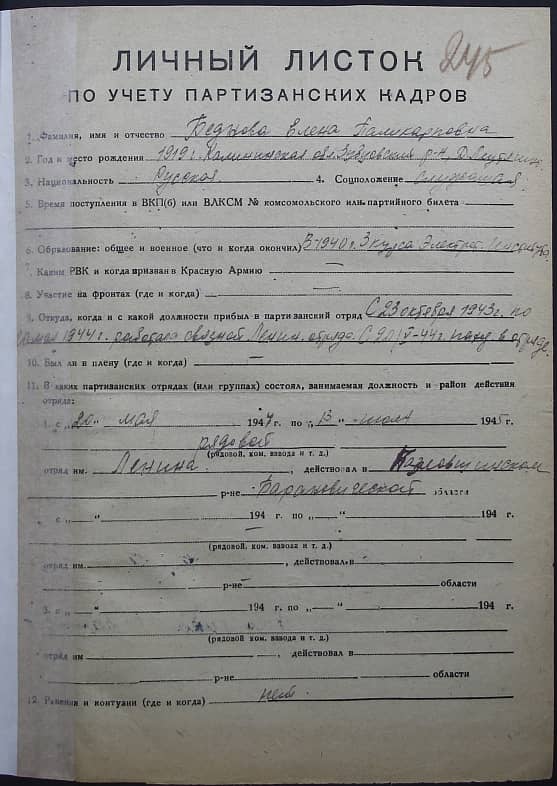 245
ЛИЧНЫЙ ЛИСТОК
ПО УЧЕТУ ПАРТИЗАНСКИХ КАДРОВ
1. Фамилия, имя и отчество Елена Поликарповна
2. Год и место рождения 1919 г. Калининская обл. Зубцовский р-н, д.
3. Национальность Русская 4. Соцположение служащая
5. Время поступления в ВКП(б) или ВЛКСМ № комсомольского или партийного билета
—
6. Образование: общее и военное (что и когда окончил) В 1940 г. 3 курса Электрот. Института
7. Каким РВК и когда призван в Красную Армию —
8. Участие на фронтах (где и когда) —
9. Откуда, когда и с какой должности прибыл в партизанский отряд С 23 октября 1943 г. по
мая 1944 г. работала связной Ленин. отряда. С 20/V-44 г. в отряде
10. Был ли в плену (где и когда) —
11. В каких партизанских отрядах (или группах) состоял, занимаемая должность и район действия
отряда:
1. с „20" мая 1944 г. по „13" июля 194 г.
рядовой
(рядовой, ком. взвода и т. д.)
отряд им. Ленина, действовал в
р-не Барановической области
с „ — " 194 г. по „ — " 194 г.
—
(рядовой, ком. взвода и т. д.)
отряд им. , действовал в
р-не — области
3. с „ — " 194 г. по „ — " 194 г.
(рядовой, ком. взвода и т. д.)
отряд им — , действовал в
р-не — области
12. Ранения и контузии (где и когда) нет.